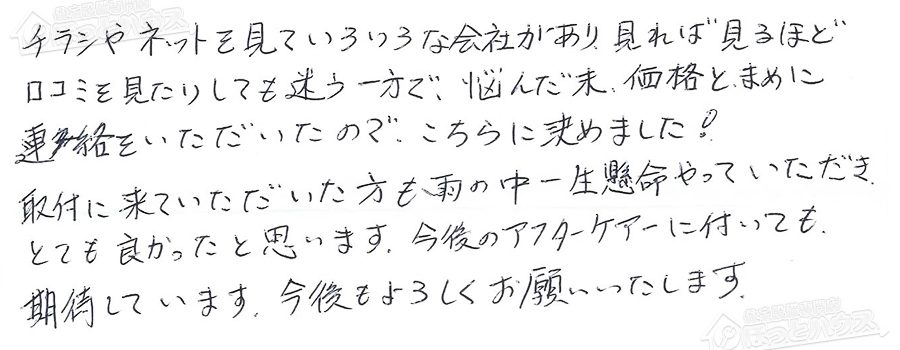 チラシやネットを見ていろいろな会社があり、見れば見るほど
口コミを見たりしても迷う一方で、悩んだ末、価格と、まめに
連絡をいただいたので、こちらに決めました！
取付に来ていただいた方も、雨の中一生懸命やっていただき、
とても良かったと思います。今後のアフターケアーに付いても、
期待しています。今後もよろしくお願いいたします。
ほっとハウス